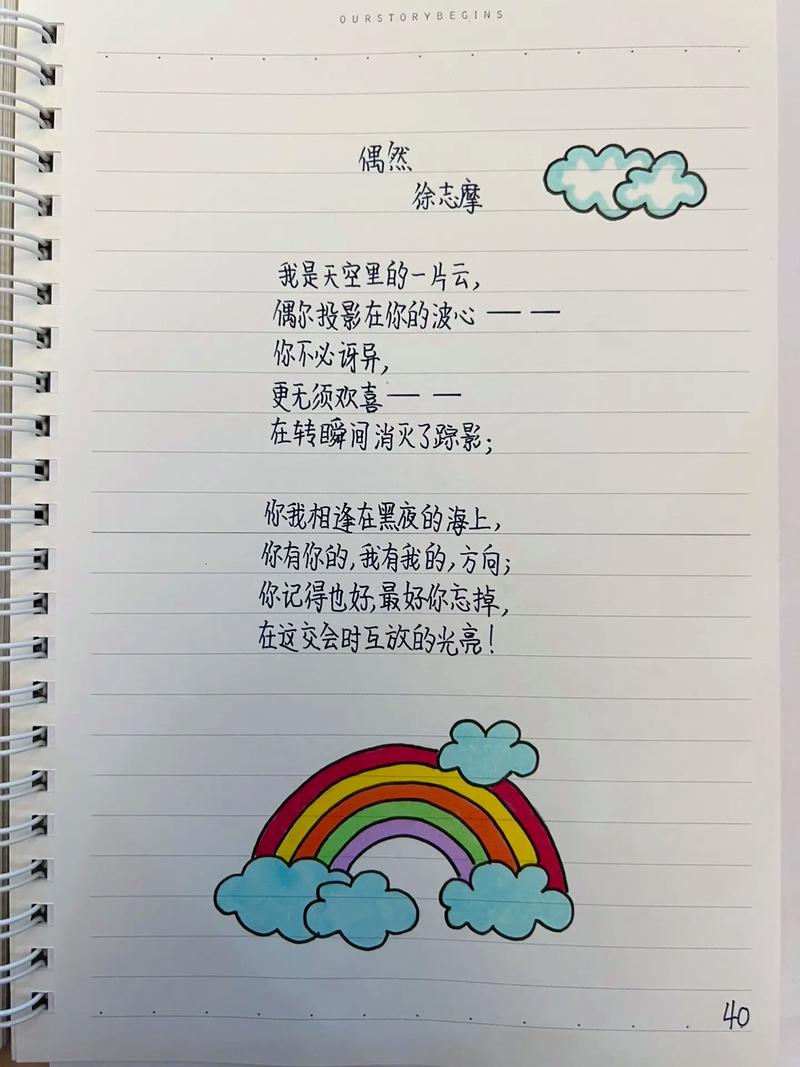 OURSTORYBEGINS
偶然
徐志摩
我是天空里的一片云,
偶尔投影在你的波心 — —
你不必讶异,
更无须欢喜 — —
在转瞬间消灭了踪影;
你我相逢在黑夜的海上,
你有你的,我有我的,方向;
你记得也好,最好你忘掉,
在这交会时互放的光亮!
40